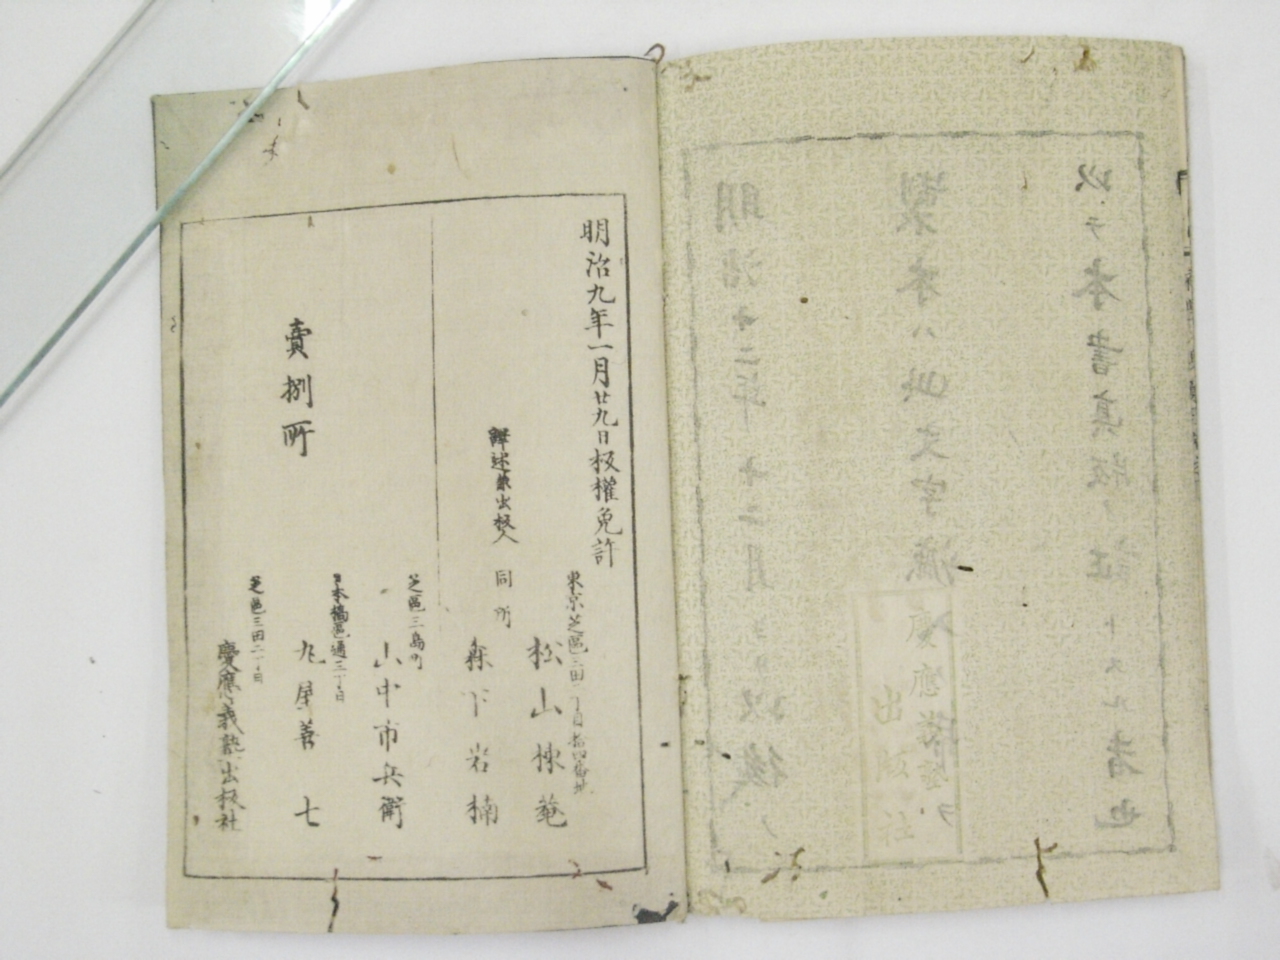 明治十二年十二月ヨリ以後ノ
製本ハ此文字漉
以テ本書真版ノ証トスル者也
慶應義塾
出版社
明治九年一月廿九日板權免許
譯述兼出板人
東京芝區三田 丁目拾四番地
松山棟菴
同所
森下岩楠
賣捌所
芝區三島町
山中市兵衛
日本橋區通三丁目
丸屋善七
芝區三田二丁目
慶應義塾出板社